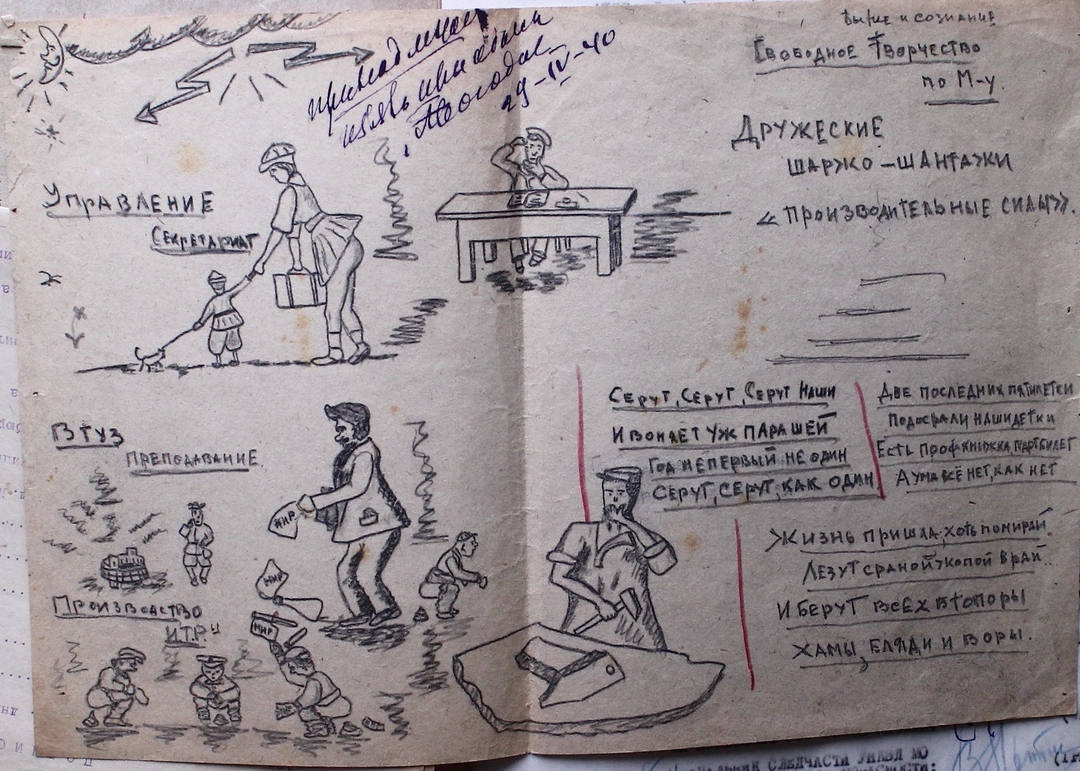 Выше и сознание
Свободное Творчество
по М-у.
29-IV-40
Дружеские
шаржо-шантажи
«производительные силы».
Управление
Секретариат
Серут, Серут, Серут Наши
И воняет уж парашей
Год не первый не один
Серут, серут, как один
Две последних пятилетки
Подосрали наши детки
Есть профкнижка, партбилет
А ума всё нет, как нет
Жизнь пришла, хоть помирай.
Лезут сраной жопой в рай..
И берут всех в топоры
Хамы, бляди и воры.
ВТУЗ
Преподавание
жир
жир
жир
Производство
ИТРы
следчасти УНКВД МО